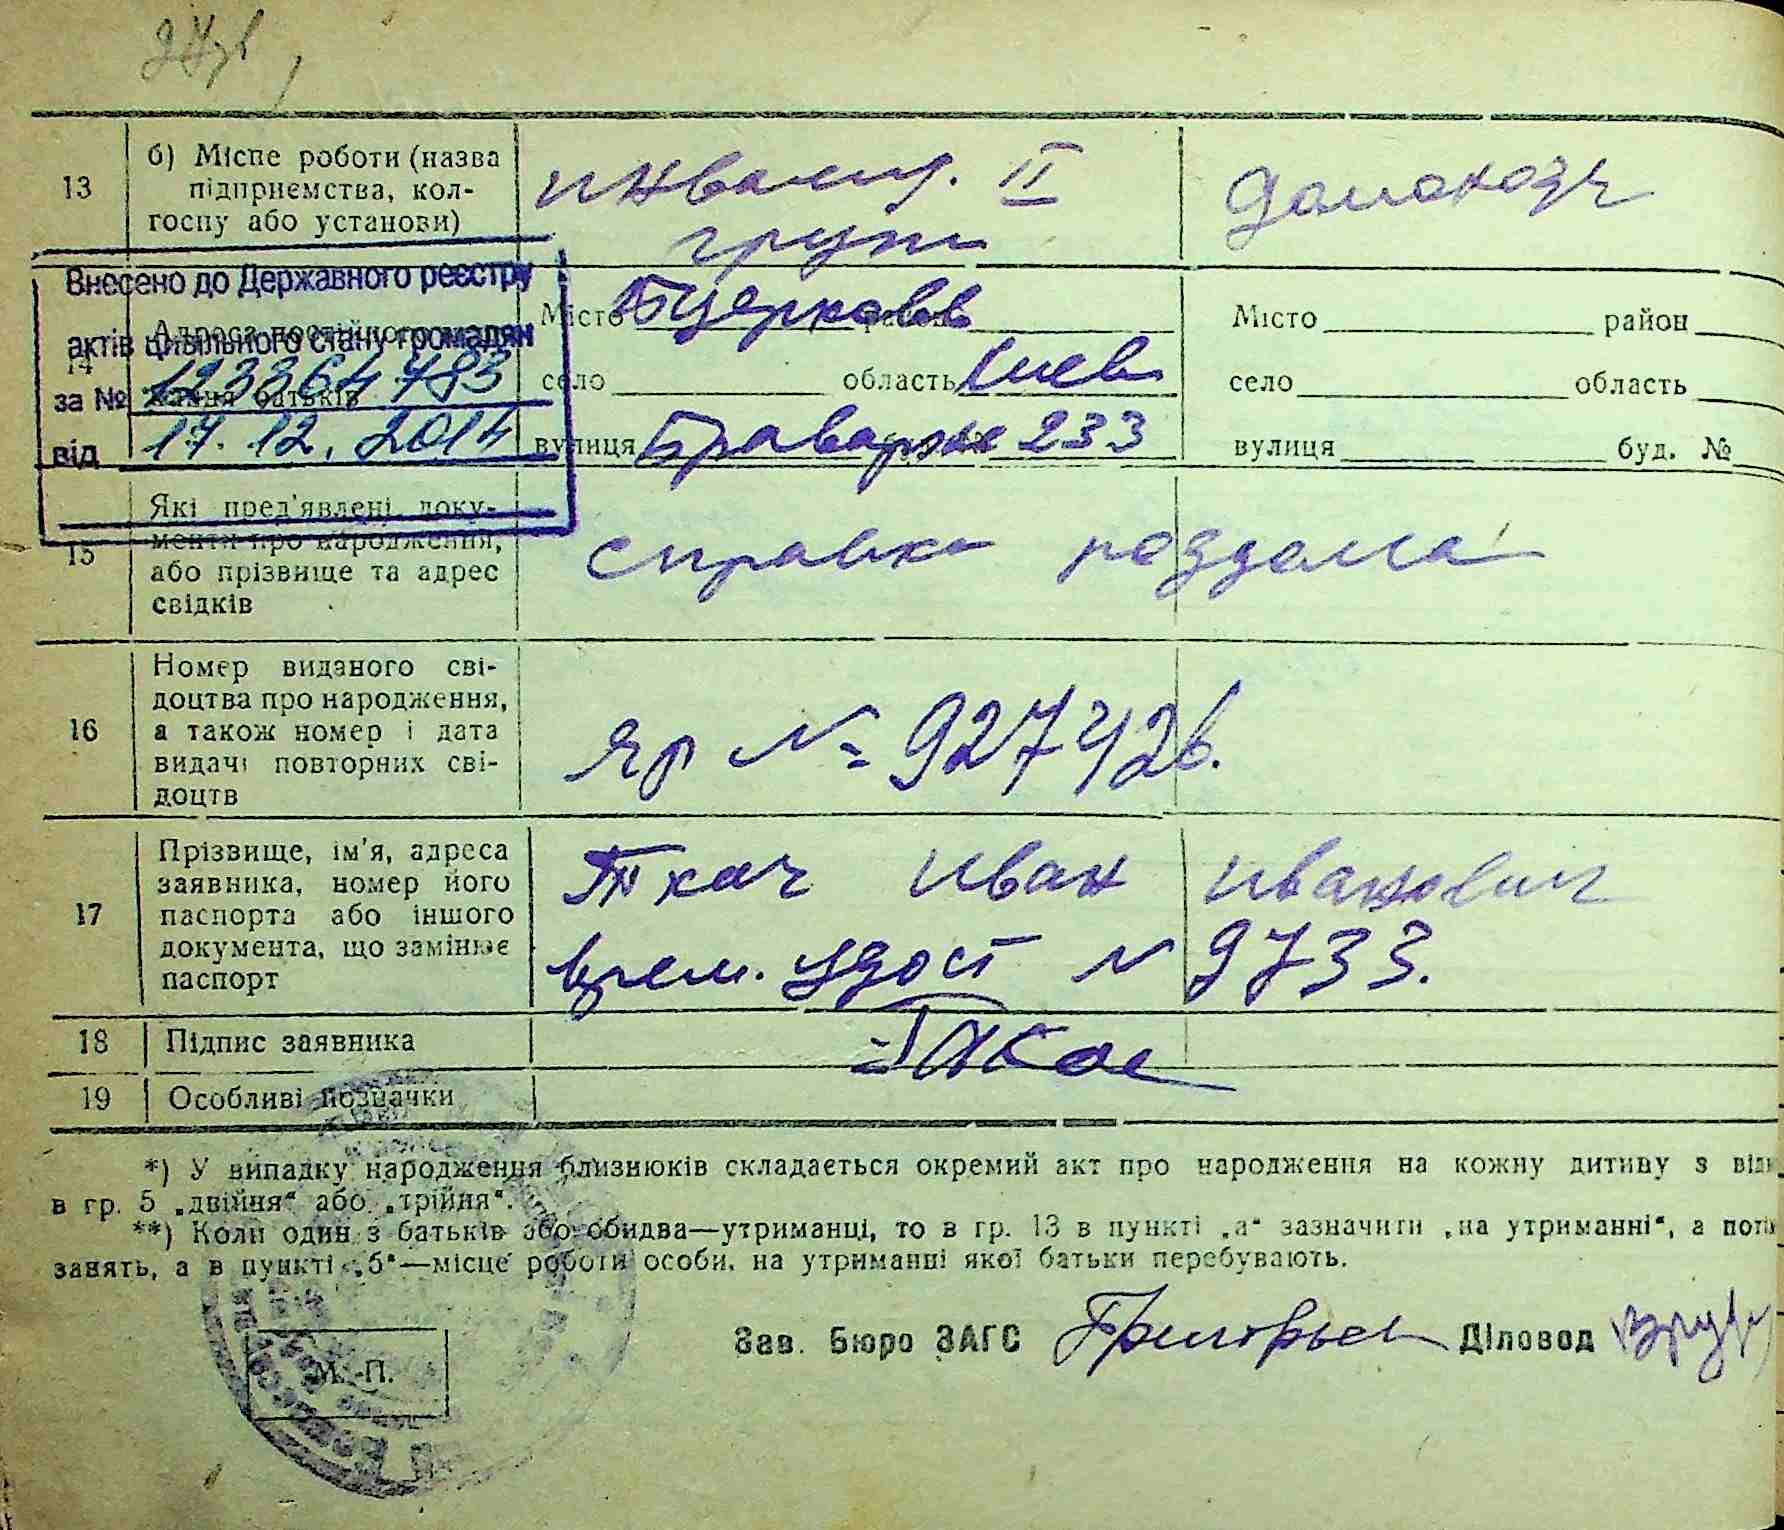 13
б) Місце роботи (назва
підприємства, кол-
госпу або установи)
инвалид. II
групи
домохозч
Внесено до Державного реєстру
актів цивільного стану громадян
за №
від 17. 12. 2014
14
Адреса постійного
батьків
Місто Бцерковь
село область Киев
вулиця 233
Місто район
село область
вулиця буд. №
15
Які пред'явлені доку-
менти про народження,
або прізвище та адрес
свідків
справка роддома
16
Номер виданого сві-
доцтва про народження,
а також номер і дата
видачі повторних сві-
доцтв
яр № 927426.
17
Прізвище, ім'я, адреса
заявника, номер його
паспорта або іншого
документа, що замінює
паспорт
Ткач Иван Иванович
врем. удост N 9733.
18 Підпис заявника
19 Особливі позначки
*) У випадку народження близнюків складається окремий акт про народження на кожну дитину з
в гр. 5 „двійня“ або „трійня“.
**) Коли один з батьків або обидва—утриманці, то в гр. 13 в пункті „а“ зазначити „на утриманні“, а
занять, а в пункті „б“—місце роботи особи, на утриманні якої батьки перебувають.
Зав. Бюро ЗАГС Діловод
М.-П.